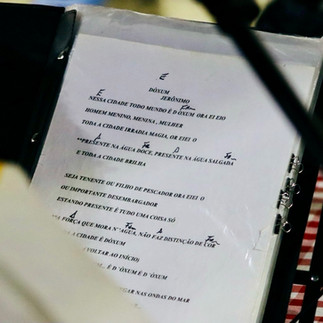 E
DÓXUM
JERÔNIMO
E
NESSA CIDADE TODO MUNDO É D'ÓXUM ORA EI EIO
F#m
HOMEM MENINO, MENINA, MULHER
TODA A CIDADE IRRADIA MAGIA, OR EIEI O
A F#m
PRESENTE NA ÁGUA DOCE, PRESENTE NA ÁGUA SALGADA
E TODA A CIDADE BRILHA
SEJA TENENTE OU FILHO DE PESCADOR ORA EIEI O
OU IMPORTANTE DESEMBARGADOR
ESTANDO PRESENTE É TUDO UMA COISA SÓ
A A
FORÇA QUE MORA N'ÁGUA, NÃO FAZ DISTINÇÃO DE COR
A CIDADE É DÓXUM
VOLTAR AO INÍCIO)
É D'ÓXUM É D'ÓXUM
NAS ONDAS DO MAR